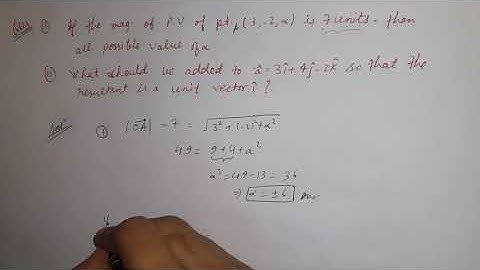 Ques ① If the mag. of P.V of pt. (3,-2,α) is 7 units. then
all possible value of α
② What should be added to a⃗ = 3î+4ĵ-2k̂ so that the
resultant is a unit vector î ?
Solⁿ ① |OA⃗| = 7 = √3²+(-2)²+α²
49 = 9+4+α²
α² = 49-13 = 36
⇒ α = ±6 Ans